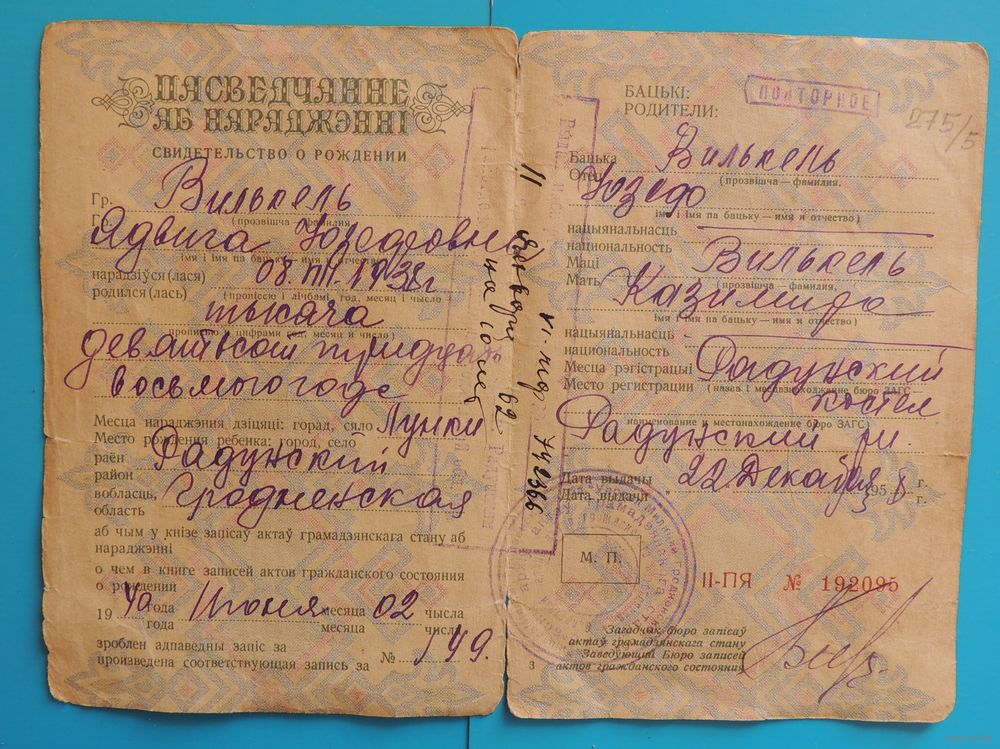 ПАСВЕДЧАННЕ
АБ НАРАДЖЭННІ
СВИДЕТЕЛЬСТВО О РОЖДЕНИИ
Гр. Вилькель
Гр. (прозвішча — фамилия)
Ядвига Юзефовна
імя і імя па бацьку — имя и отчество)
нарадзіўся (лася) 08.VIII.1938г
родился (лась) (прописсю і лічбамі год, месяц і число
тысяча
прописью и цифрами год, месяц и число)
девятьсот тридцать
восьмого года
Месца нараджэння дзіцяці: горад, сяло Лунки
Место рождения ребенка: город, село
раён Радунский
район
вобласць, Гродненская
область
аб чым у кнізе запісаў актаў грамадзянскага стану аб
нараджэнні
о чем в книге записей актов гражданского состояния
о рождении
19 года Июня месяца 02 чысла
года месяца числа
зроблен адпаведны запіс за
произведена соответствующая запись за № 149.
БАЦЬКІ:
РОДИТЕЛИ:
ПОВТОРНОЕ
275/5
Бацька Вилькель
Отец (прозвішча — фамилия,
Юзеф
імя і імя па бацьку — имя и отчество)
нацыянальнасць
национальность
Маці Вилькель
Мать (прозвішча — фамилия,
Казимира
імя і імя па бацьку — имя и отчество)
нацыянальнасць
национальность
Месца рэгістрацыі Радунский
Место регистрации (назва і месцазнаходжанне бюро ЗАГС
костел
наименование и местонахождение бюро ЗАГС)
Радунский
Дата выдачы 22 Декабря 1958 г.
Дата выдачи г.
М. П.
II-ПЯ № 192095
Загадчык бюро запісаў
актаў грамадзянскага стану
Заведующий Бюро записей
актов гражданского состояния
3